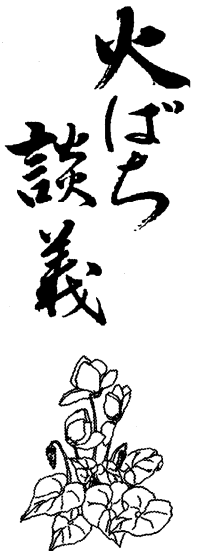 火ばち
談義